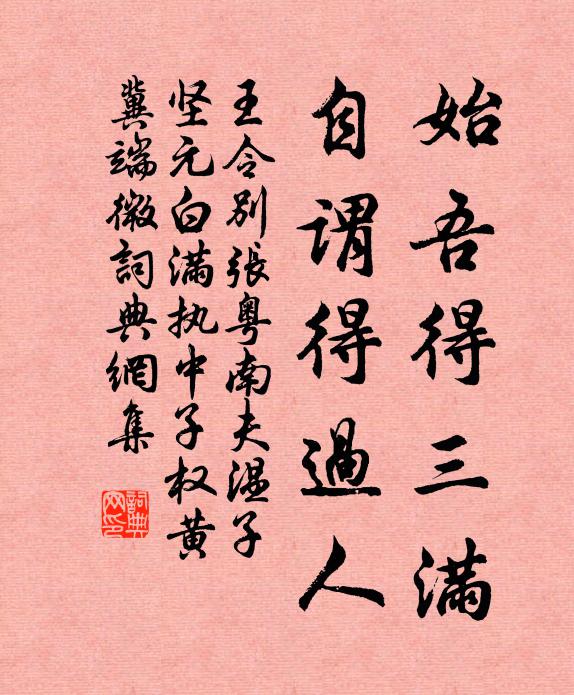 始吾得三满
自谓得过人
王令别张粤南夫温子
坚元白满执中子权黄
冀端微詞典網集
詞典
网印